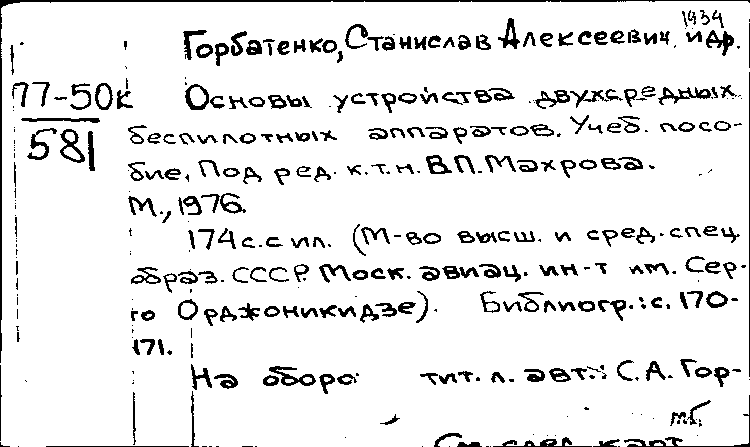 1934
Горбатенко, Станислав Алексеевич и др.
77-50к
581
Основы устройства двухсредных
беспилотных аппаратов. Учеб. посо-
бие. Под ред. к.т.н. В.П. Махрова.
М., 1976.
174 с. с ил. (М-во высш. и сред. спец.
образ. СССР. Моск. авиац. ин-т им. Сер-
го Орджоникидзе). Библиогр.: с. 170-
171.
На оборо тит. л. авт.: С.А. Гор-
мб.
См. след. карт.